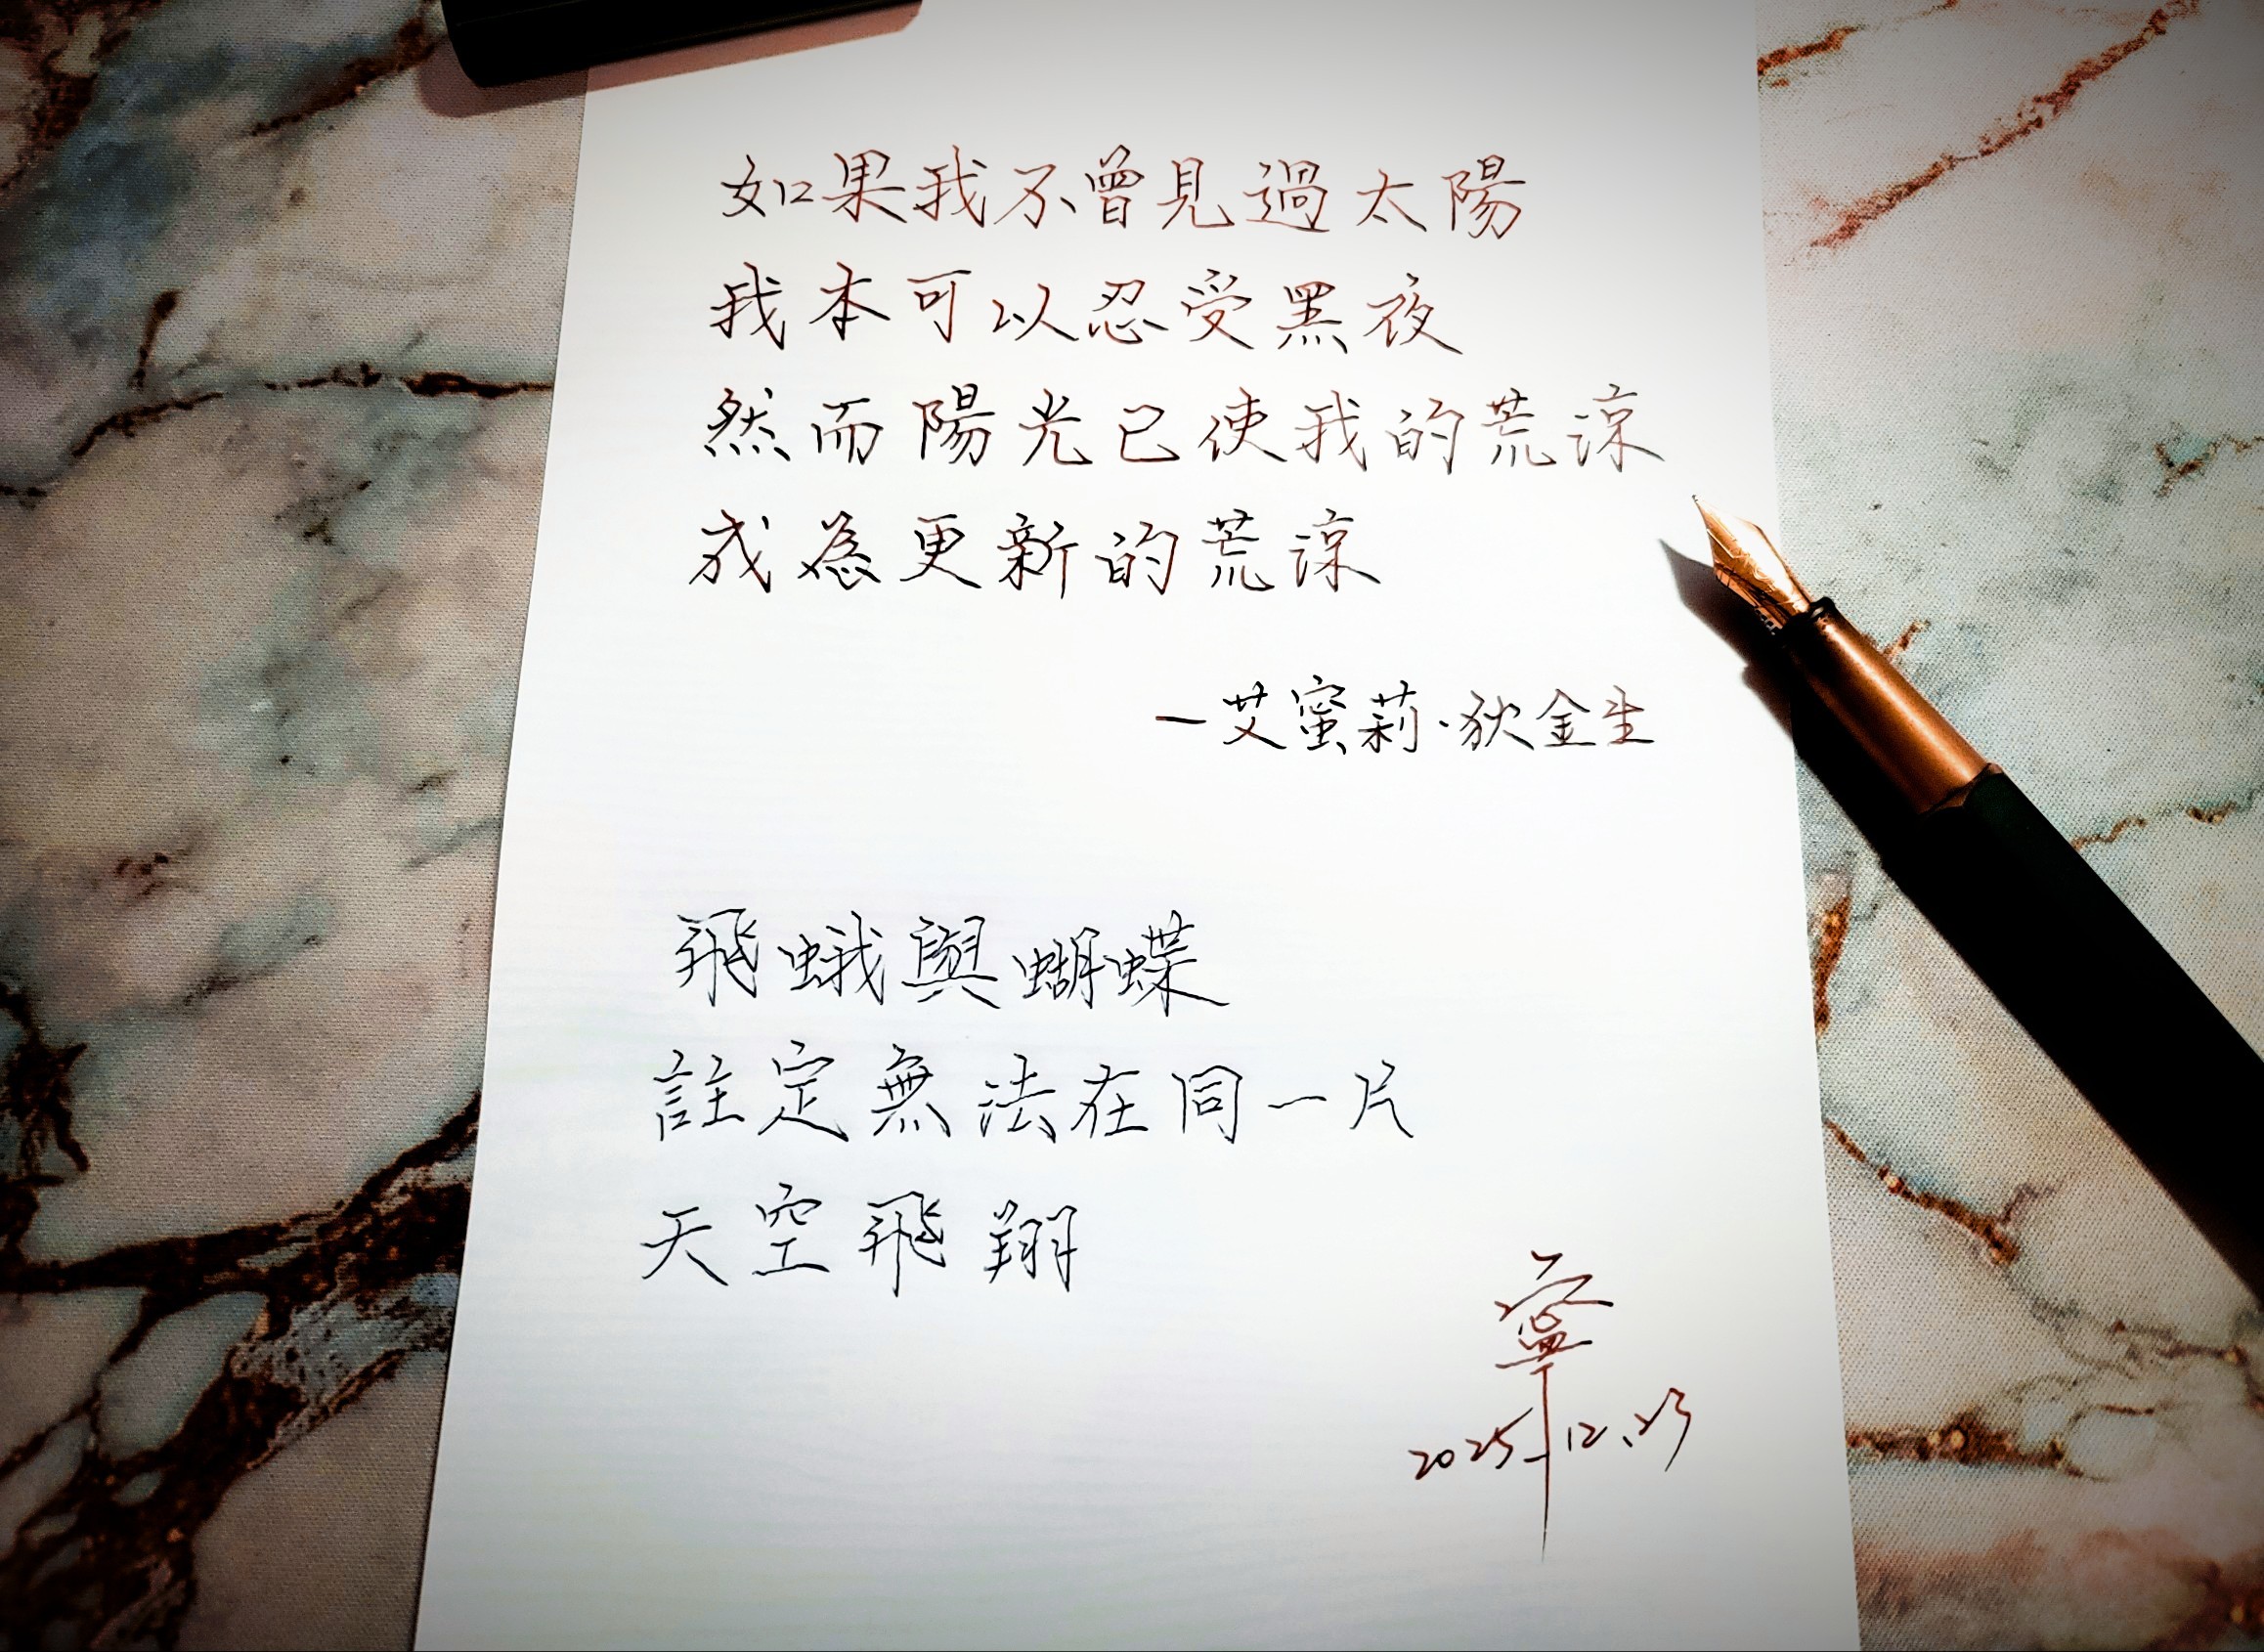 如果我不曾見過太陽
我本可以忍受黑夜
然而陽光已使我的荒涼
成為更新的荒涼
—艾蜜莉·狄金生
飛蛾與蝴蝶
註定無法在同一片
天空飛翔
寧
2025.12.23